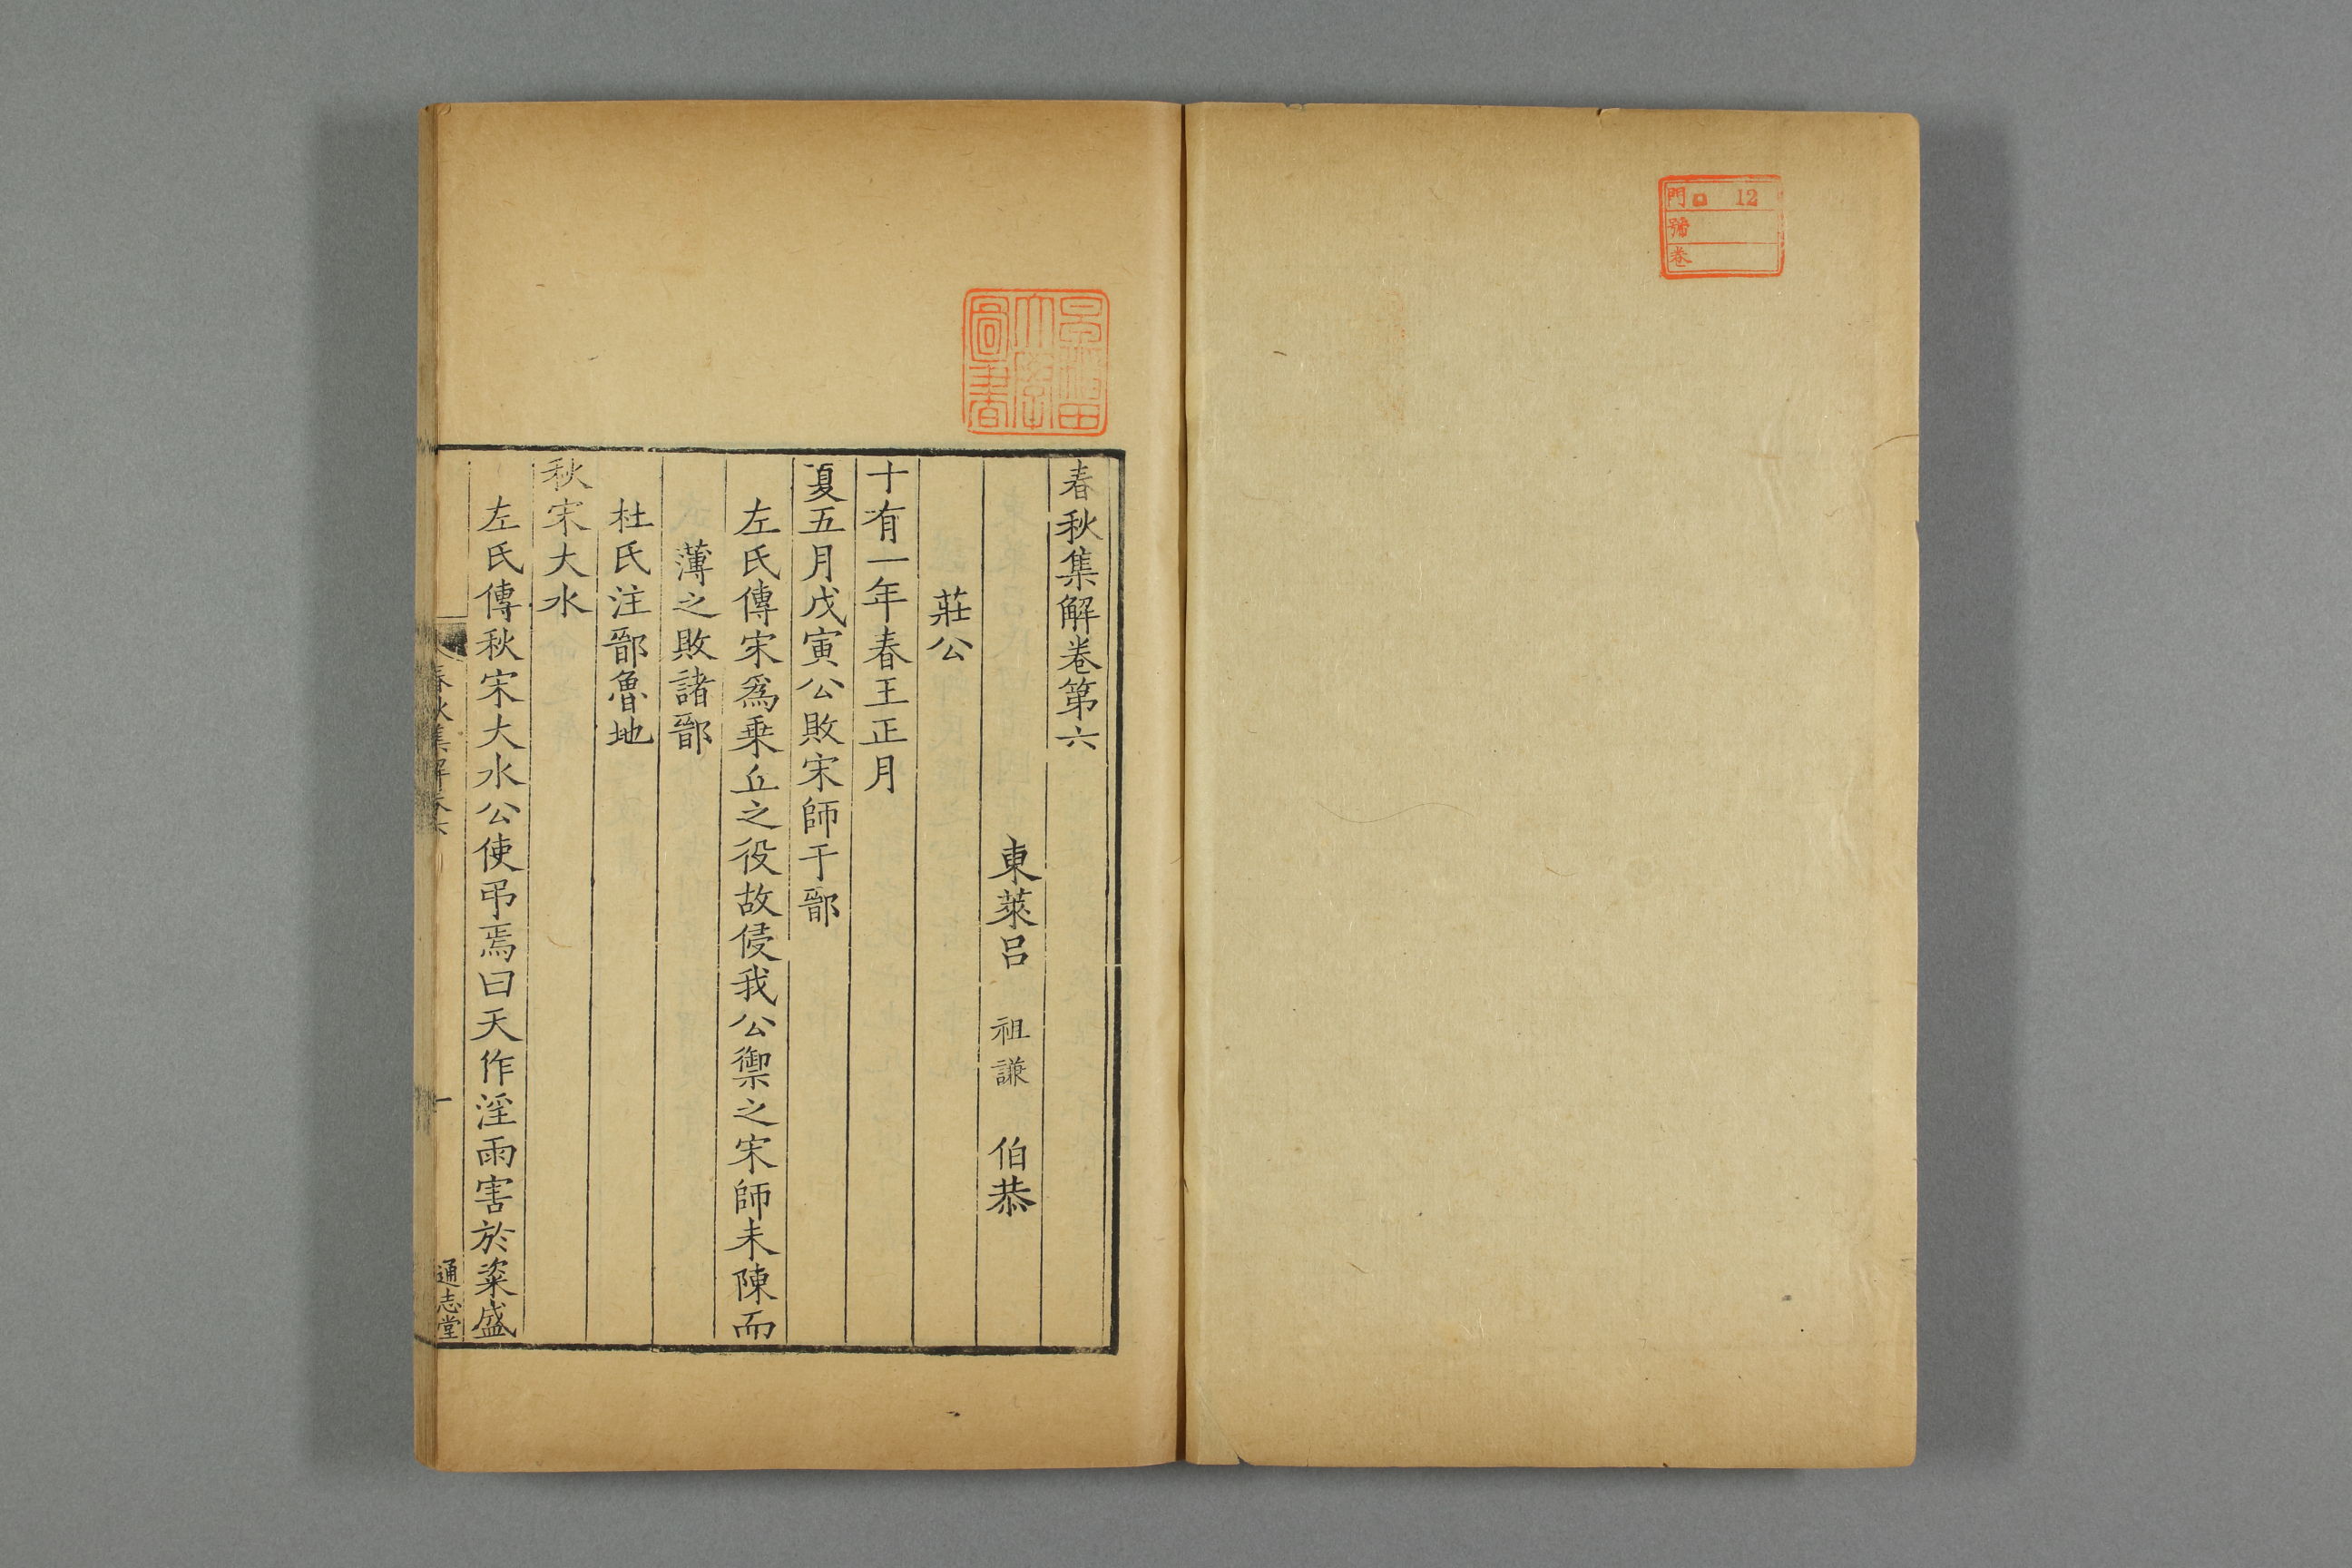 門ロ 12
號
卷
早稲田
大學
圖書
春秋集解卷第六
東萊呂 祖謙 伯恭
莊公
十有一年春王正月
夏五月戊寅公敗宋師于鄑
左氏傳宋爲乗丘之役故侵我公禦之宋師未陳而
薄之敗諸鄑
杜氏注鄑魯地
秋宋大水
左氏傳秋宋大水公使弔焉曰天作淫雨害於粢盛
春秋集解卷六
一
通志堂